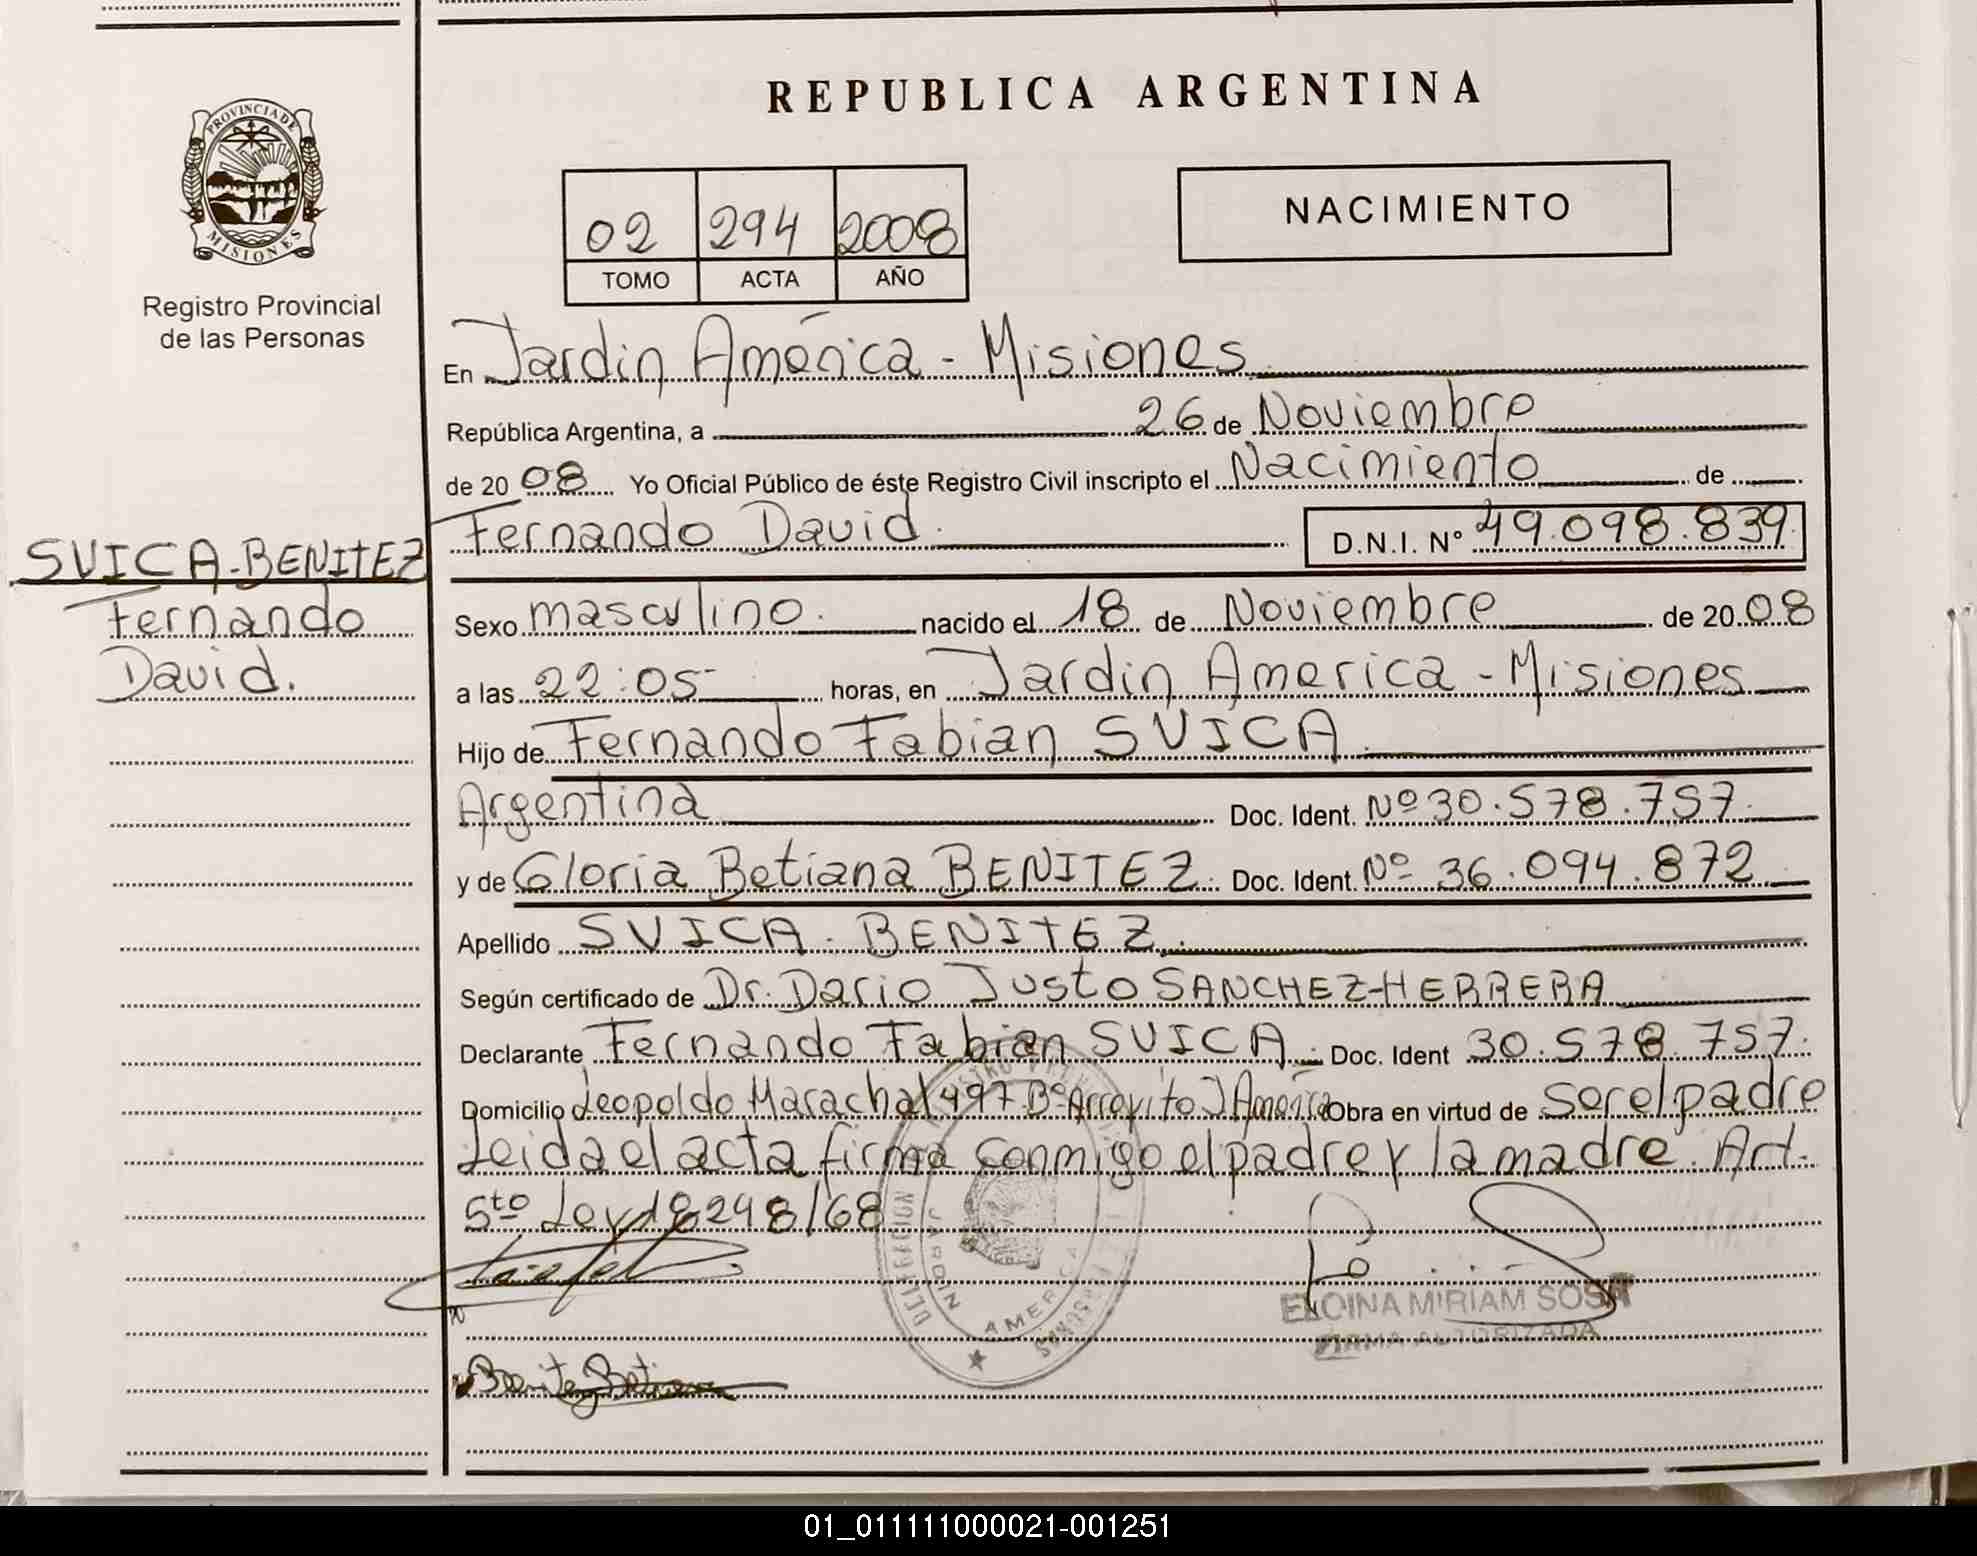 REPUBLICA ARGENTINA
PROVINCIA DE MISIONES
Registro Provincial
de las Personas
02 294 2008
TOMO ACTA AÑO
NACIMIENTO
En Jardin América - Misiones
República Argentina, a 26 de Noviembre
de 2008 Yo Oficial Público de éste Registro Civil inscripto el Nacimiento de
Fernando David. D.N.I. N° 49.098.839.
SVICA-BENITEZ
Fernando
David.
Sexo masculino. nacido el 18 de Noviembre de 2008
a las 22:05 horas, en Jardin America - Misiones
Hijo de Fernando Fabian SVICA
Argentina Doc. Ident. Nº 30.578.757.
y de Gloria Betiana BENITEZ. Doc. Ident. Nº 36.094.872
Apellido SVICA - BENITEZ.
Según certificado de Dr. Dario Justo SANCHEZ-HERRERA
Declarante Fernando Fabian SVICA. Doc. Ident 30.578.757.
Domicilio Leopoldo Marachal 497 Bº Arroyito J América Obra en virtud de ser el padre
Leida el acta firma conmigo el padre y la madre. Art.
5to Ley 18248/68
DELEGACION JARDIN AMERICA
ELOINA MIRIAM SOSA
FIRMA AUTORIZADA
Benitez Betiana
01_011111000021-001251